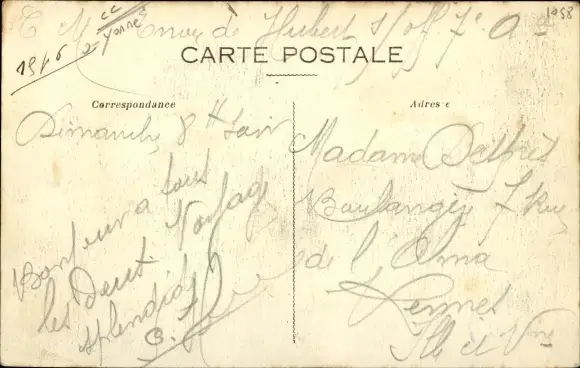 Envoi de Hubert
1916
Yonne
1958
CARTE POSTALE
Correspondance
Adresse
Dimanche 8 H soir
Bonjour a tous
les deux Voyage
splendide
Madame
Boulangerie 7 Rue
de l'Alma
Rennes
Ille et Vne